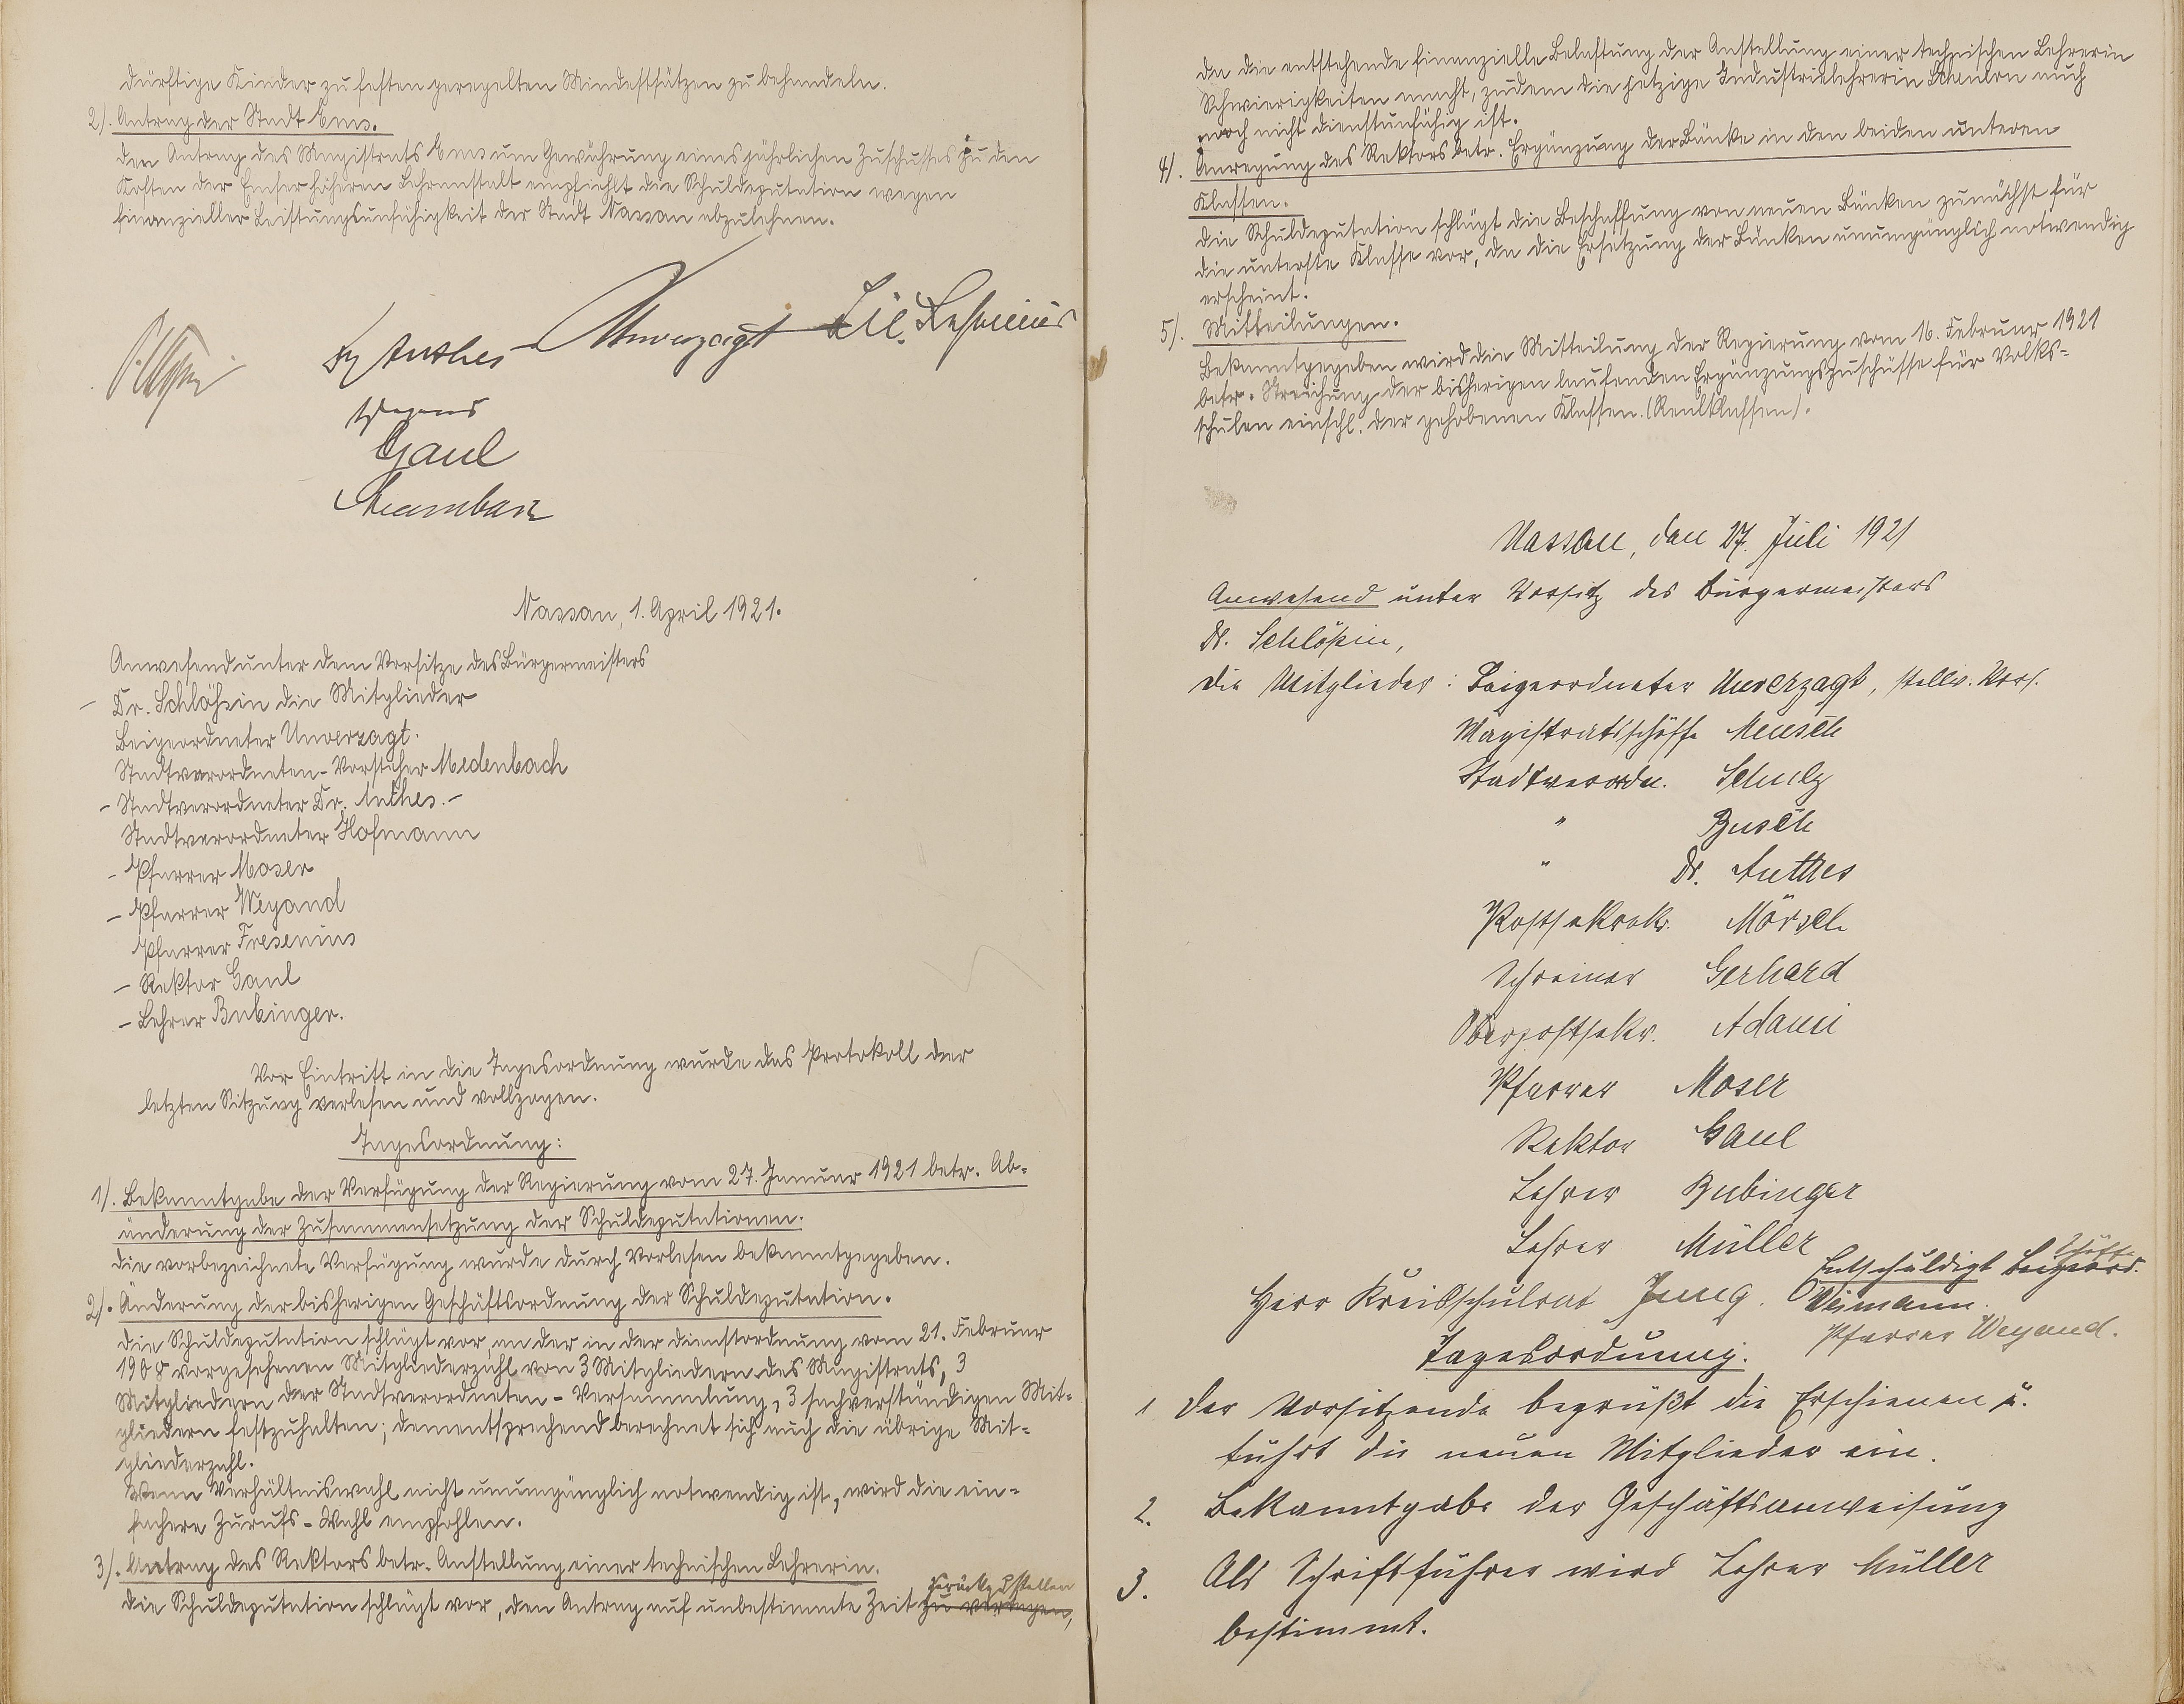 dürftige Kinder zu festen geregelten Mindestsätzen zu behandeln.
2). Antrag der Stadt Ems.
Den Antrag des Magistrats Ems um Gewährung eines jährlichen Zuschusses zu den
Kosten der Emser höheren Lehranstalt empfiehlt die Schuldeputation wegen
finanzieller Leistungsunfähigkeit der Stadt Nassau abzulehnen.
Anthes Unverzagt Lic. Fresenius
Gaul
Nassau, 1. April 1921.
Anwesend unter dem Vorsitze des Bürgermeisters
– Dr. Schlößin die Mitglieder
Beigeordneter Unverzagt.
Stadtverordneten-Vorsteher Medenbach
– Stadtverordneter Dr. Anthes. –
Stadtverordneter Hofmann
– Pfarrer Moser
– Pfarrer Weyand
Pfarrer Fresenius
– Rektor Gaul
– Lehrer Bubinger.
Vor Eintritt in die Tagesordnung wurde das Protokoll der
letzten Sitzung verlesen und vollzogen.
Tagesordnung:
1). Bekanntgabe der Verfügung der Regierung vom 27. Januar 1921 betr. Ab-
änderung der Zusammensetzung der Schuldeputationen.
Die vorbezeichnete Verfügung wurde durch Vorlesen bekanntgegeben.
2). Änderung der bisherigen Geschäftsordnung der Schuldeputation.
Die Schuldeputation schlägt vor, an der in der Dienstordnung vom 21. Februar
1908 vorgesehenen Mitgliederzahl von 3 Mitgliedern des Magistrats, 3
Mitgliedern der Stadtverordneten-Versammlung, 3 sachverständigen Mit-
gliedern festzuhalten; dementsprechend berechnet sich auch die übrige Mit-
gliederzahl.
Wenn Verhältniswahl nicht unumgänglich notwendig ist, wird die ein-
fachere Zurufs-Wahl empfohlen.
3). Antrag des Rektors betr. Anstellung einer technischen Lehrerin.
zurückzustellen
Die Schuldeputation schlägt vor, den Antrag auf unbestimmte Zeit zu vertagen,
da die entstehende finanzielle Belastung der Anstellung einer technischen Lehrerin
Schwierigkeiten macht, zudem die jetzige Industrielehrerin auch
noch nicht dienstunfähig ist.
4). Anregung des Rektors betr. Ergänzung der Bänke in den beiden unteren
Klassen.
Die Schuldeputation schlägt die Beschaffung von neuen Bänken zunächst für
die unterste Klasse vor, da die Ersetzung der Bänken unumgänglich notwendig
erscheint.
5). Mitteilungen.
Bekanntgegeben wird die Mitteilung der Regierung vom 16. Februar 1921
betr. Streichung der bisherigen laufenden Ergänzungszuschüsse für Volks-
schulen einschl. der gehobenen Klassen. (Realklassen).
Nassau, den 27. Juli 1921
Anwesend unter Vorsitz des Bürgermeisters
Dr. Schlößin,
die Mitglieder: Beigeordneter Unverzagt, stellv. Vors.
Magistratsschöffe Mensch
Stadtverordn. Schulz
" Busch
" Dr. Anthes
Postsekretr. Mörsch
Schreiner Gerhard
Oberpostsekr. Adami
Pfarrer Moser
Rektor Gaul
Lehrer Bubinger
Lehrer Müller
Herr Kreisschulrat Jung.
Entschuldigt Beigeord.
Schöffe
Weimann
Pfarrer Weyand.
Tagesordnung.
1 Der Vorsitzende begrüßt die Erschienen u.
führt die neuen Mitglieder ein.
2. Bekanntgabe der Geschäftsanweisung
3. Als Schriftführer wird Lehrer Müller
bestimmt.